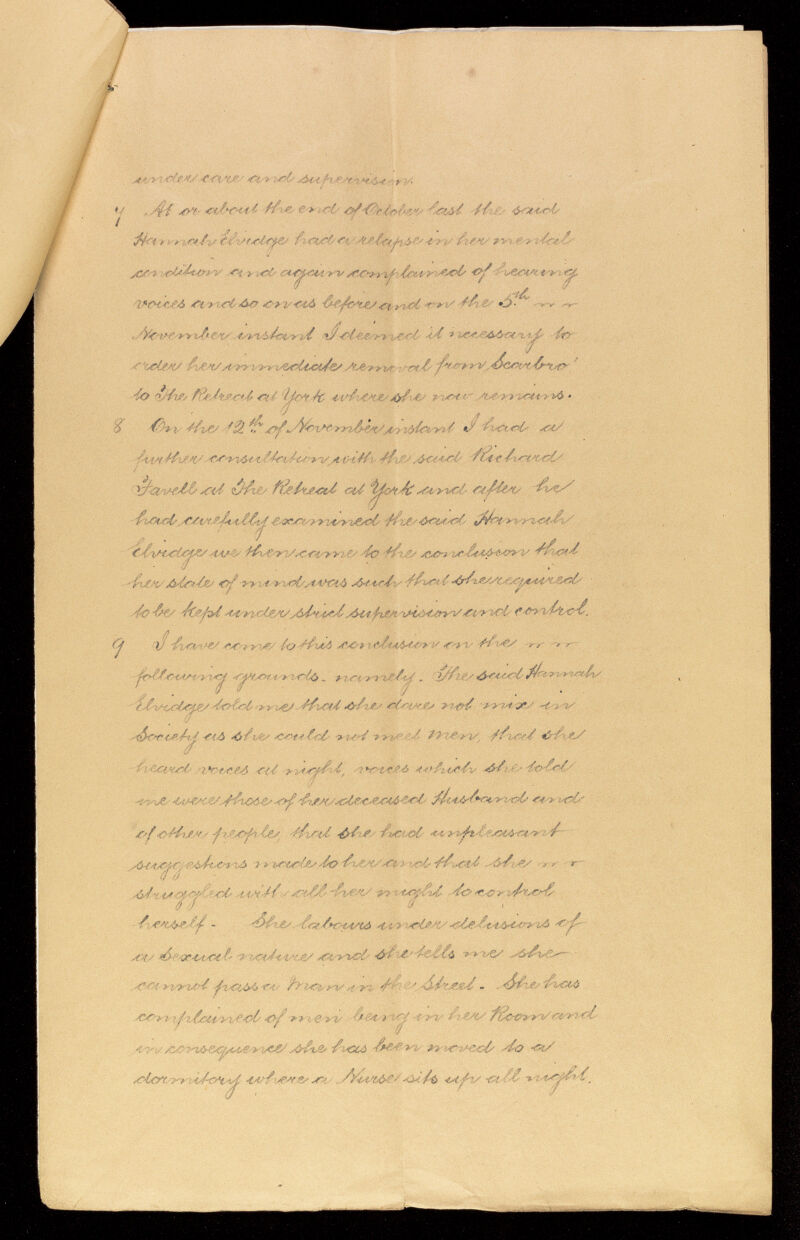 under care and supervision.
7 At or about the end of October last the said
Hannah Elvidge had a relapse in her mental
condition and again complained of hearing
voices and so on as before and on the 5th
November instant I deemed it necessary to
order her immediate removal from Scarbro'
to The Retreat at York where she now remains.
8 On the 12th of November instant I had a
further consultation with the said Richard
Favell at The Retreat at York and after he
had carefully examined the said Hannah
Elvidge we then came to the conclusion that
her state of mind was such that she required
to be kept under strict supervision and control.
9 I have come to this conclusion on the
following grounds. namely. The said Hannah
Elvidge told me that she dare not mix in
Society as she could not meet Men, that she
heard voices at night, voices which she told
me were those of her deceased Husband and
of other people, that she had unpleasant
suggestions made to her and that she
struggled with all her might to control
herself - She labours under delusions of
a Sexual nature and she tells me she
cannot pass a Man in the Street - She has
complained of men being in her Room and
in consequence she has been moved to a
dormitory where a Nurse sits up all night.